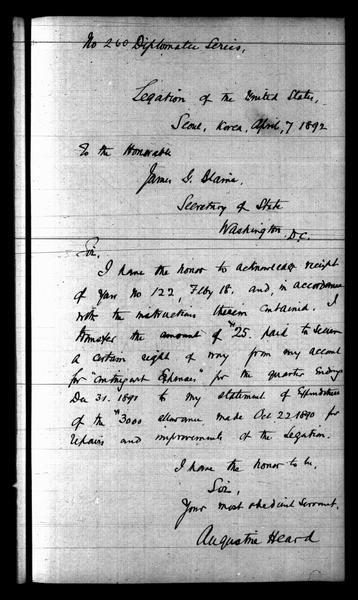 No 260 Diplomatic Series.
Legation of the United States,
Seoul, Korea, April, 7 1892
To the Honorable
James G. Blaine,
Secretary of State
Washington D.C.
Sir,
I have the honor to acknowledge receipt
of Yours No 122, Feby 18. and, in accordance
with the instructions therein contained. I
transfer the amount of $25. paid to secure
a certain right of way from my account
for "Contingent Expenses" for the quarter Ending
Dec 31. 1891 to my statement of Expenditures
of the $3000 allowance made Oct 22 1890 for
repairs and improvements of the Legation.
I have the honor to be,
Sir,
Your most obedient Servant,
Augustine Heard